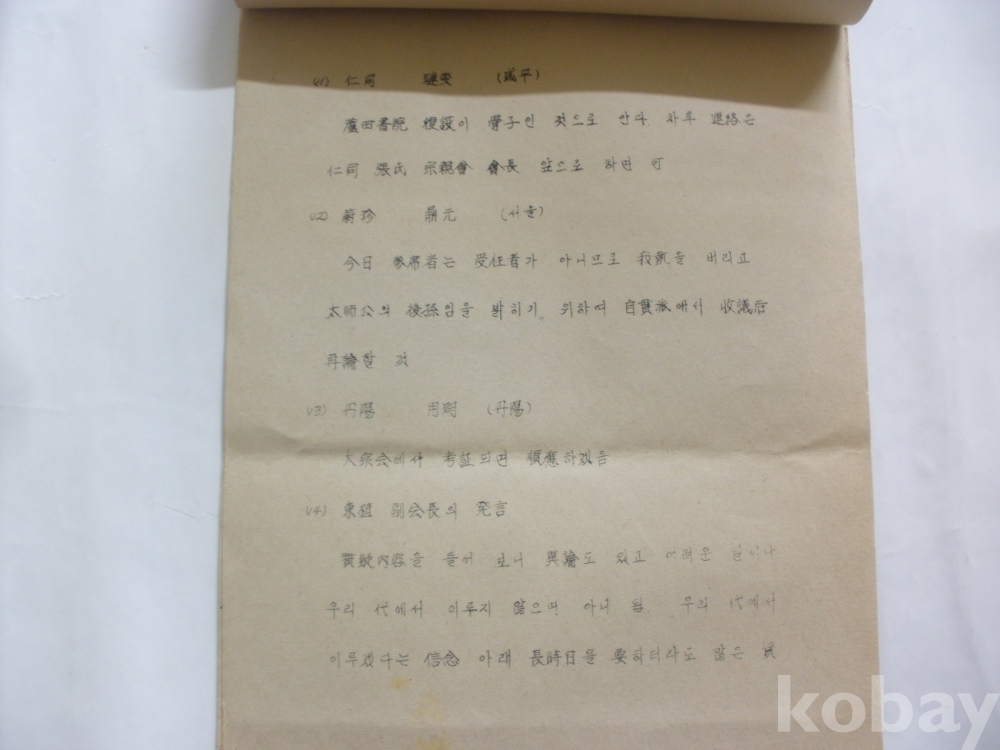 (1) 仁同 (咸平)
蘆田書院 複設이 骨子인 것으로 안다. 차후 連絡은
仁同 張氏 宗親會 會長 앞으로 하면 可
(2) 蔚珍 鼎元 (서울)
今日 参席者는 受任者가 아니므로 我執을 버리고
太师公의 後孫임을 밝히기 위하여 自貫派에서 收議后
再論할 것
(3) 丹陽 用朝 (丹陽)
大宗会에서 考証되면 順應하겠음
(4) 東植 副会長의 発言
實致内容을 들어 보니 異論도 있고 어려운 일이나
우리 代에서 이루지 않으면 아니 됨. 우리 代에서
이루겠다는 信念 아래 長時日을 要하더라도 많은
kobay